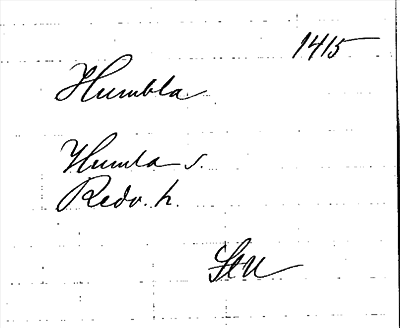 1415
Humbla
Humla s.
Redv. h.
StU